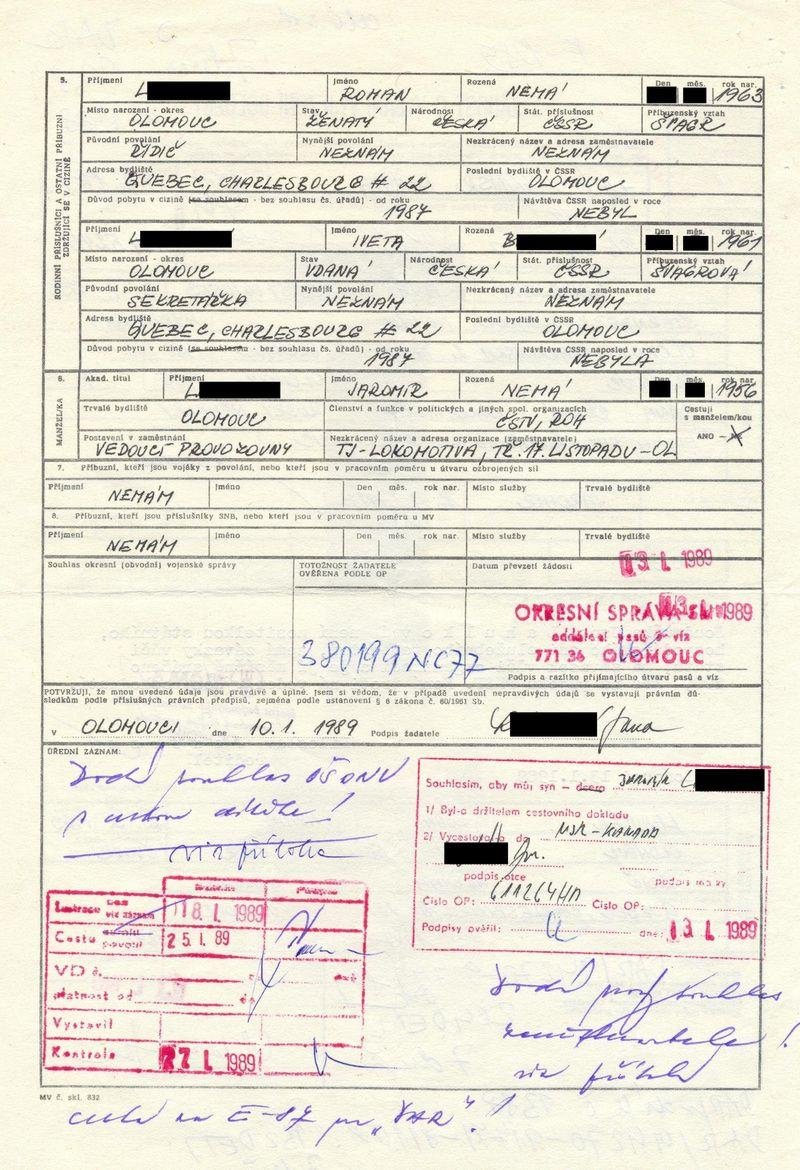 5.
RODINNÍ PŘÍSLUŠNÍCI A OSTATNÍ PŘÍBUZNÍ ZDRŽUJÍCÍ SE V CIZINĚ
Příjmení Jméno Rozená Den měs. rok nar.
L ROMAN NEMÁ 1963
Místo narození - okres Stav Národnost Stát. příslušnost Příbuzenský vztah
OLOMOUC ŽENATÝ ČESKÁ ČSSR ŠVAGR
Původní povolání Nynější povolání Nezkrácený název a adresa zaměstnavatele
ŘIDIČ NEZNÁM NEZNÁM
Adresa bydliště Poslední bydliště v ČSSR
QUEBEC, CHARLESBOURG # 22 OLOMOUC
Důvod pobytu v cizině (se souhlasem - bez souhlasu čs. úřadů) - od roku Návštěva ČSSR naposled v roce
1987 NEBYL
Příjmení Jméno Rozená Den měs. rok nar.
L IVETA B 1961
Místo narození - okres Stav Národnost Stát. příslušnost Příbuzenský vztah
OLOMOUC VDANÁ ČESKÁ ČSSR ŠVAGROVÁ
Původní povolání Nynější povolání Nezkrácený název a adresa zaměstnavatele
SEKRETÁŘKA NEZNÁM NEZNÁM
Adresa bydliště Poslední bydliště v ČSSR
QUEBEC, CHARLESBOURG # 22 OLOMOUC
Důvod pobytu v cizině (se souhlasem - bez souhlasu čs. úřadů) - od roku Návštěva ČSSR naposled v roce
1987 NEBYLA
6.
MANŽEL/KA
Akad. titul Příjmení Jméno Rozená Den měs. rok nar.
L JAROMÍR NEMÁ 1956
Trvalé bydliště Členství a funkce v politických a jiných spol. organizacích Cestuji s manželem/kou
OLOMOUC ČSTV, ROH
ANO - NE
Postavení v zaměstnání Nezkrácený název a adresa organizace (zaměstnavatele)
VEDOUCÍ PROVOZOVNY TJ-LOKOMOTIVA, TŘ. 17. LISTOPADU - OL
7. Příbuzní, kteří jsou vojáky z povolání, nebo kteří jsou v pracovním poměru u útvaru ozbrojených sil
Příjmení Jméno Den měs. rok nar. Místo služby Trvalé bydliště
NEMÁM
8. Příbuzní, kteří jsou příslušníky SNB, nebo kteří jsou v pracovním poměru u MV
Příjmení Jméno Den měs. rok nar. Místo služby Trvalé bydliště
NEMÁM
Souhlas okresní (obvodní) vojenské správy TOTOŽNOST ŽADATELE Datum převzetí žádosti
OVĚŘENA PODLE OP
13. I. 1989
13. I. 1989
OKRESNÍ SPRÁVA SNB
oddělení pasů a víz
771 36 OLOMOUC
380199 NC77
Podpis a razítko přijímajícího útvaru pasů a víz
POTVRZUJI, že mnou uvedené údaje jsou pravdivé a úplné. Jsem si vědom, že v případě uvedení nepravdivých údajů se vystavuji právním dů-
sledkům podle příslušných právních předpisů, zejména podle ustanovení § 6 zákona č. 60/1961 Sb.
v OLOMOUCI dne 10.1. 1989 Podpis žadatele Jana
ÚŘEDNÍ ZÁZNAM:
Dodá souhlas OŠONV
viz příloha
Souhlasím, aby můj syn - dcera L
1/ Byl-a držitelem cestovního dokladu
2/ Vycestoval-a do NSR - KANADA
podpis otce podpis matky
Číslo OP: Číslo OP:
Podpisy ověřil: dne: 13. I. 1989
Lustrace 18. I. 1989
Cestu povolil 25. I. 89
VD č.
platnost od do
Vystavil
Kontrola 27. I. 1989
Dodá souhlas
zaměstnavatele!
viz příloha
MV č. skl. 832